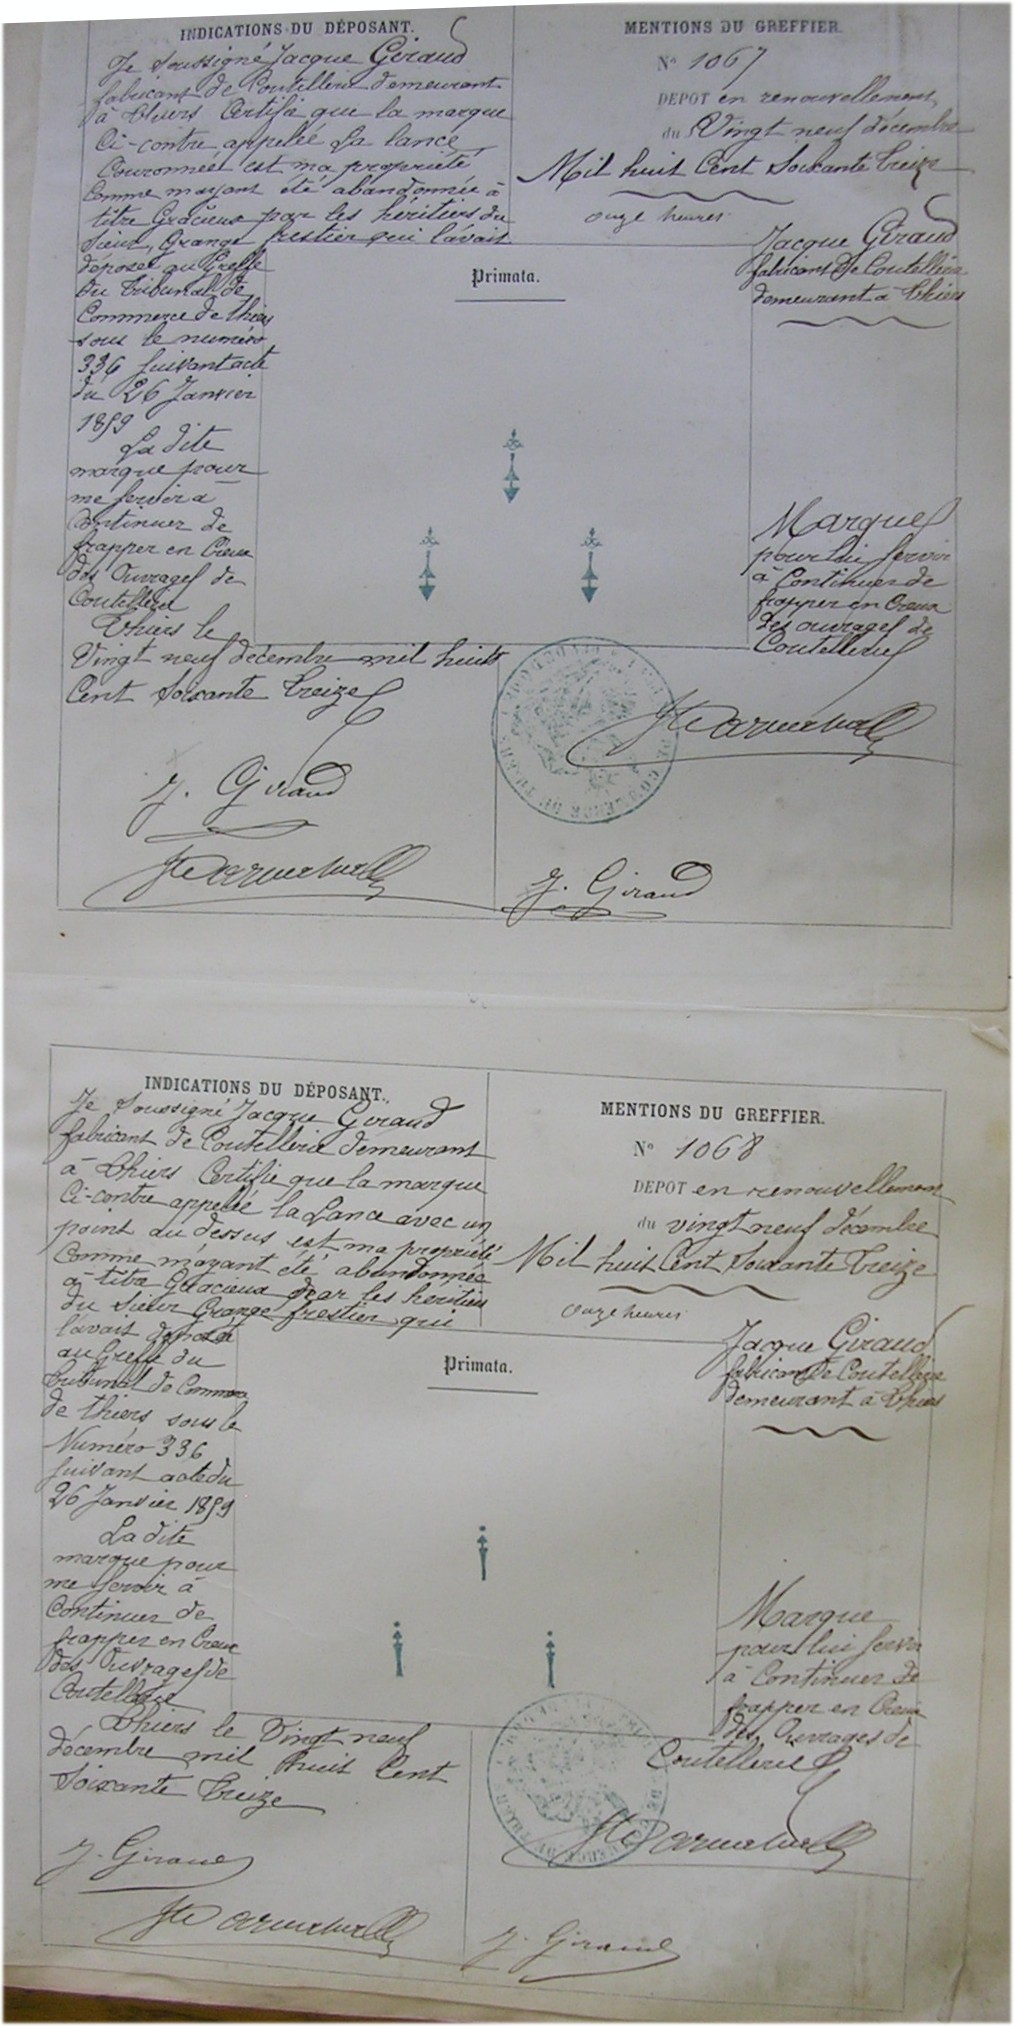 INDICATIONS DU DÉPOSANT.
Je Soussigné Jacque Giraud
fabricant de Coutellerie demeurant
à thiers Certifie que la marque
Ci-contre appelée La lance
Couronnée est ma propriété
Comme mayant été abandonnée à
titre Gracieux par les héritiers du
sieur Grange frestier qui l'avait
déposée au Greffe
du tribunal de
Commerce de thiers
sous le numéro
336 suivant acte
du 26 Janvier
1859
La dite
marque pour
me servir à
Continuer de
frapper en Creux
des Ouvrages de
Coutellerie
Thiers le
Vingt neuf décembre mil huit
Cent Soixante treize
J. Giraud
MENTIONS DU GREFFIER.
N° 1067
DEPOT en renouvellement
du Vingt neuf décembre
Mil huit Cent Soixante treize
onze heures
Jacque Giraud
fabricant de Coutellerie
demeurant à thiers
Primata.
Marque
pour lui servir
à Continuer de
frapper en Creux
des ouvrages de
Coutellerie
J. Giraud
INDICATIONS DU DÉPOSANT.
Je Soussigné Jacque Giraud
fabricant de Coutellerie demeurant
à thiers Certifie que la marque
Ci-contre appelée la Lance avec un
point au dessus est ma propriété
Comme m'ayant été abandonnée
à titre Gracieux par les héritiers
du sieur Grange frestier qui
l'avait déposée
au Greffe du
tribunal de Commerce
de thiers sous le
Numéro 336
suivant acte du
26 Janvier 1859
La dite
marque pour
me servir à
Continuer de
frapper en Creux
des Ouvrages de
Coutellerie
Thiers le Vingt neuf
décembre mil huit Cent
Soixante treize
J. Giraud
MENTIONS DU GREFFIER.
N° 1068
DEPOT en renouvellement
du vingt neuf décembre
Mil huit Cent Soixante treize
onze heures
Jacque Giraud
fabricant de Coutellerie
demeurant à thiers
Primata.
Marque
pour lui servir
à Continuer de
frapper en Creux
des Ouvrages de
Coutellerie
J. Giraud